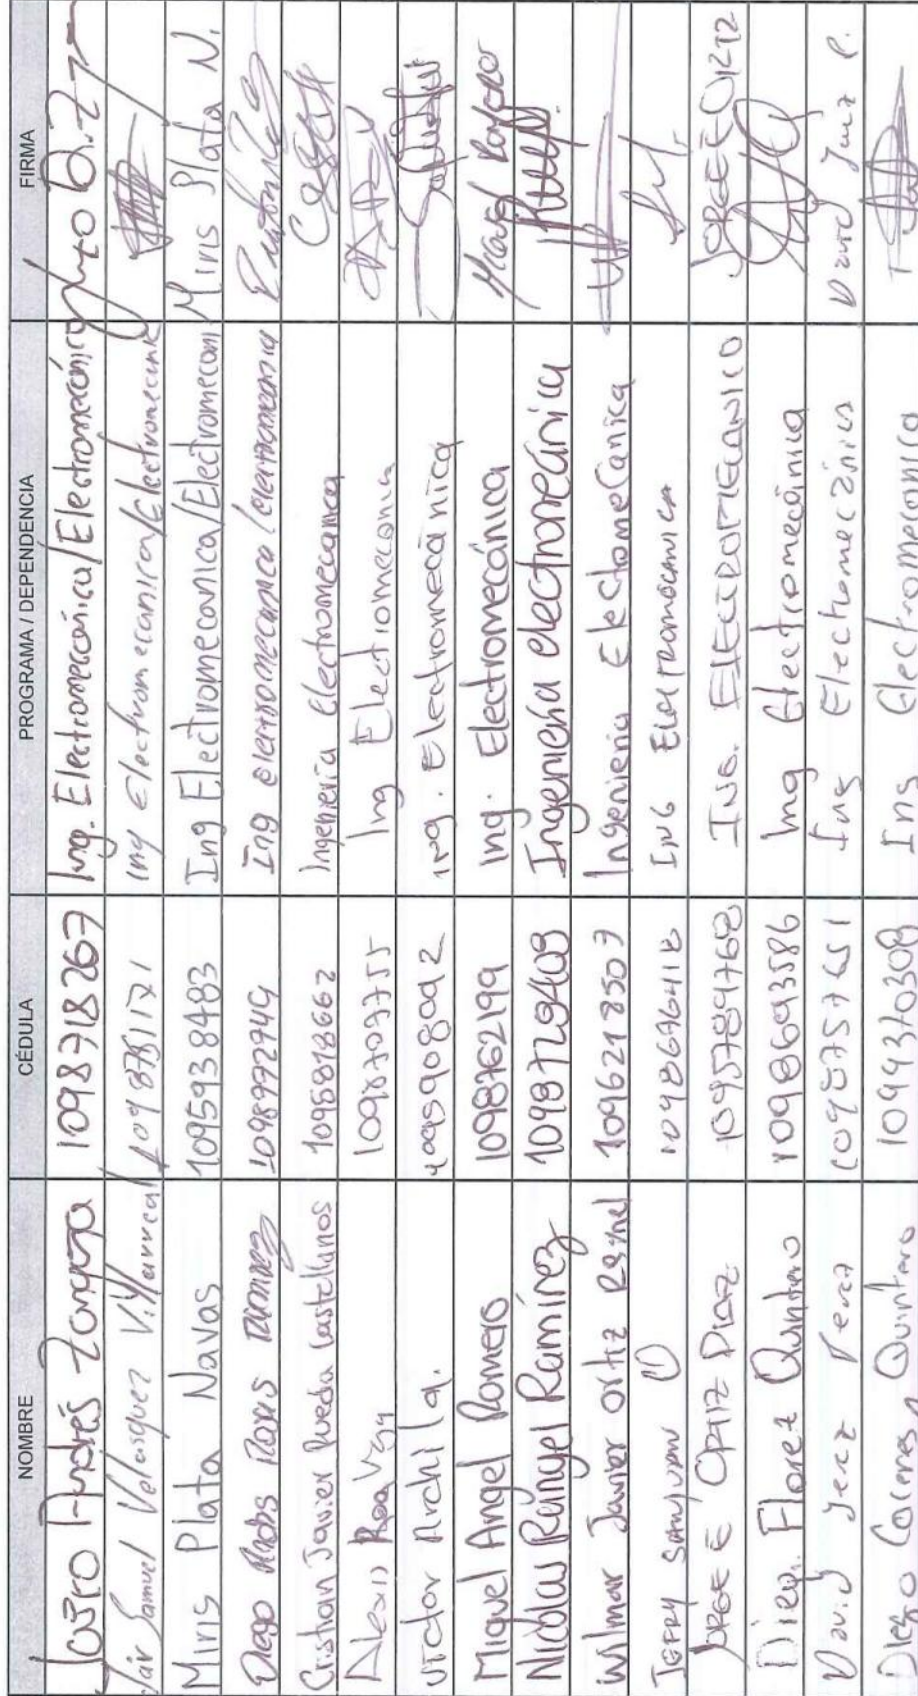 NOMBRE CÉDULA PROGRAMA / DEPENDENCIA FIRMA
Andrés 1098718267 Ing. Electromecánica/Electromecánico
Samuel Velasquez Villarreal 1098781171 Ing Electromecanica/Electromecanic
Miris Plata Navas 1095938483 Ing Electromecanica/Electromecani Miris Plata N.
Diego 109892749 Ing electromecanica
Cristian Javier Rueda Castellanos 1095818662 Ingeniería Electromecanica
Alexis Roa Vega 1098707755 Ing Electromecana
Victor Archila. 1095908092 ing. Electromecánica
Miguel Angel Romero 1098762199 Ing. Electromecánica
Nicolas Rangel Ramírez 1098729409 Ingeniería electromecánica
Wilmar Javier Ortiz 1096218507 Ingenieria Electomecanica
Jefry Sanjuan ING
JORGE E ORTIZ DIAZ 1095789768 ING. ELECTROMECANICO JORGE E ORTIZ
Diego Florez Quintero 1098693586 Ing Electromecánica
David Jerez Perez 1098757651 Ing Electromecánica David Jerez P.
Diego Caceres Quintero 1094370308 Ing Electromecanica